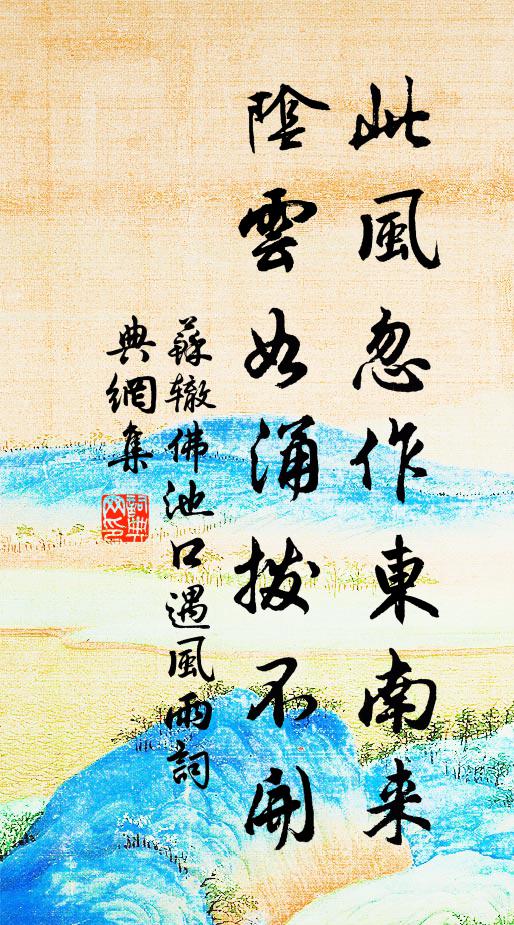 此風忽作東南来
陰雲如涌撥不開
蘇轍佛池口遇風雨詞
典網集
詞典
网印